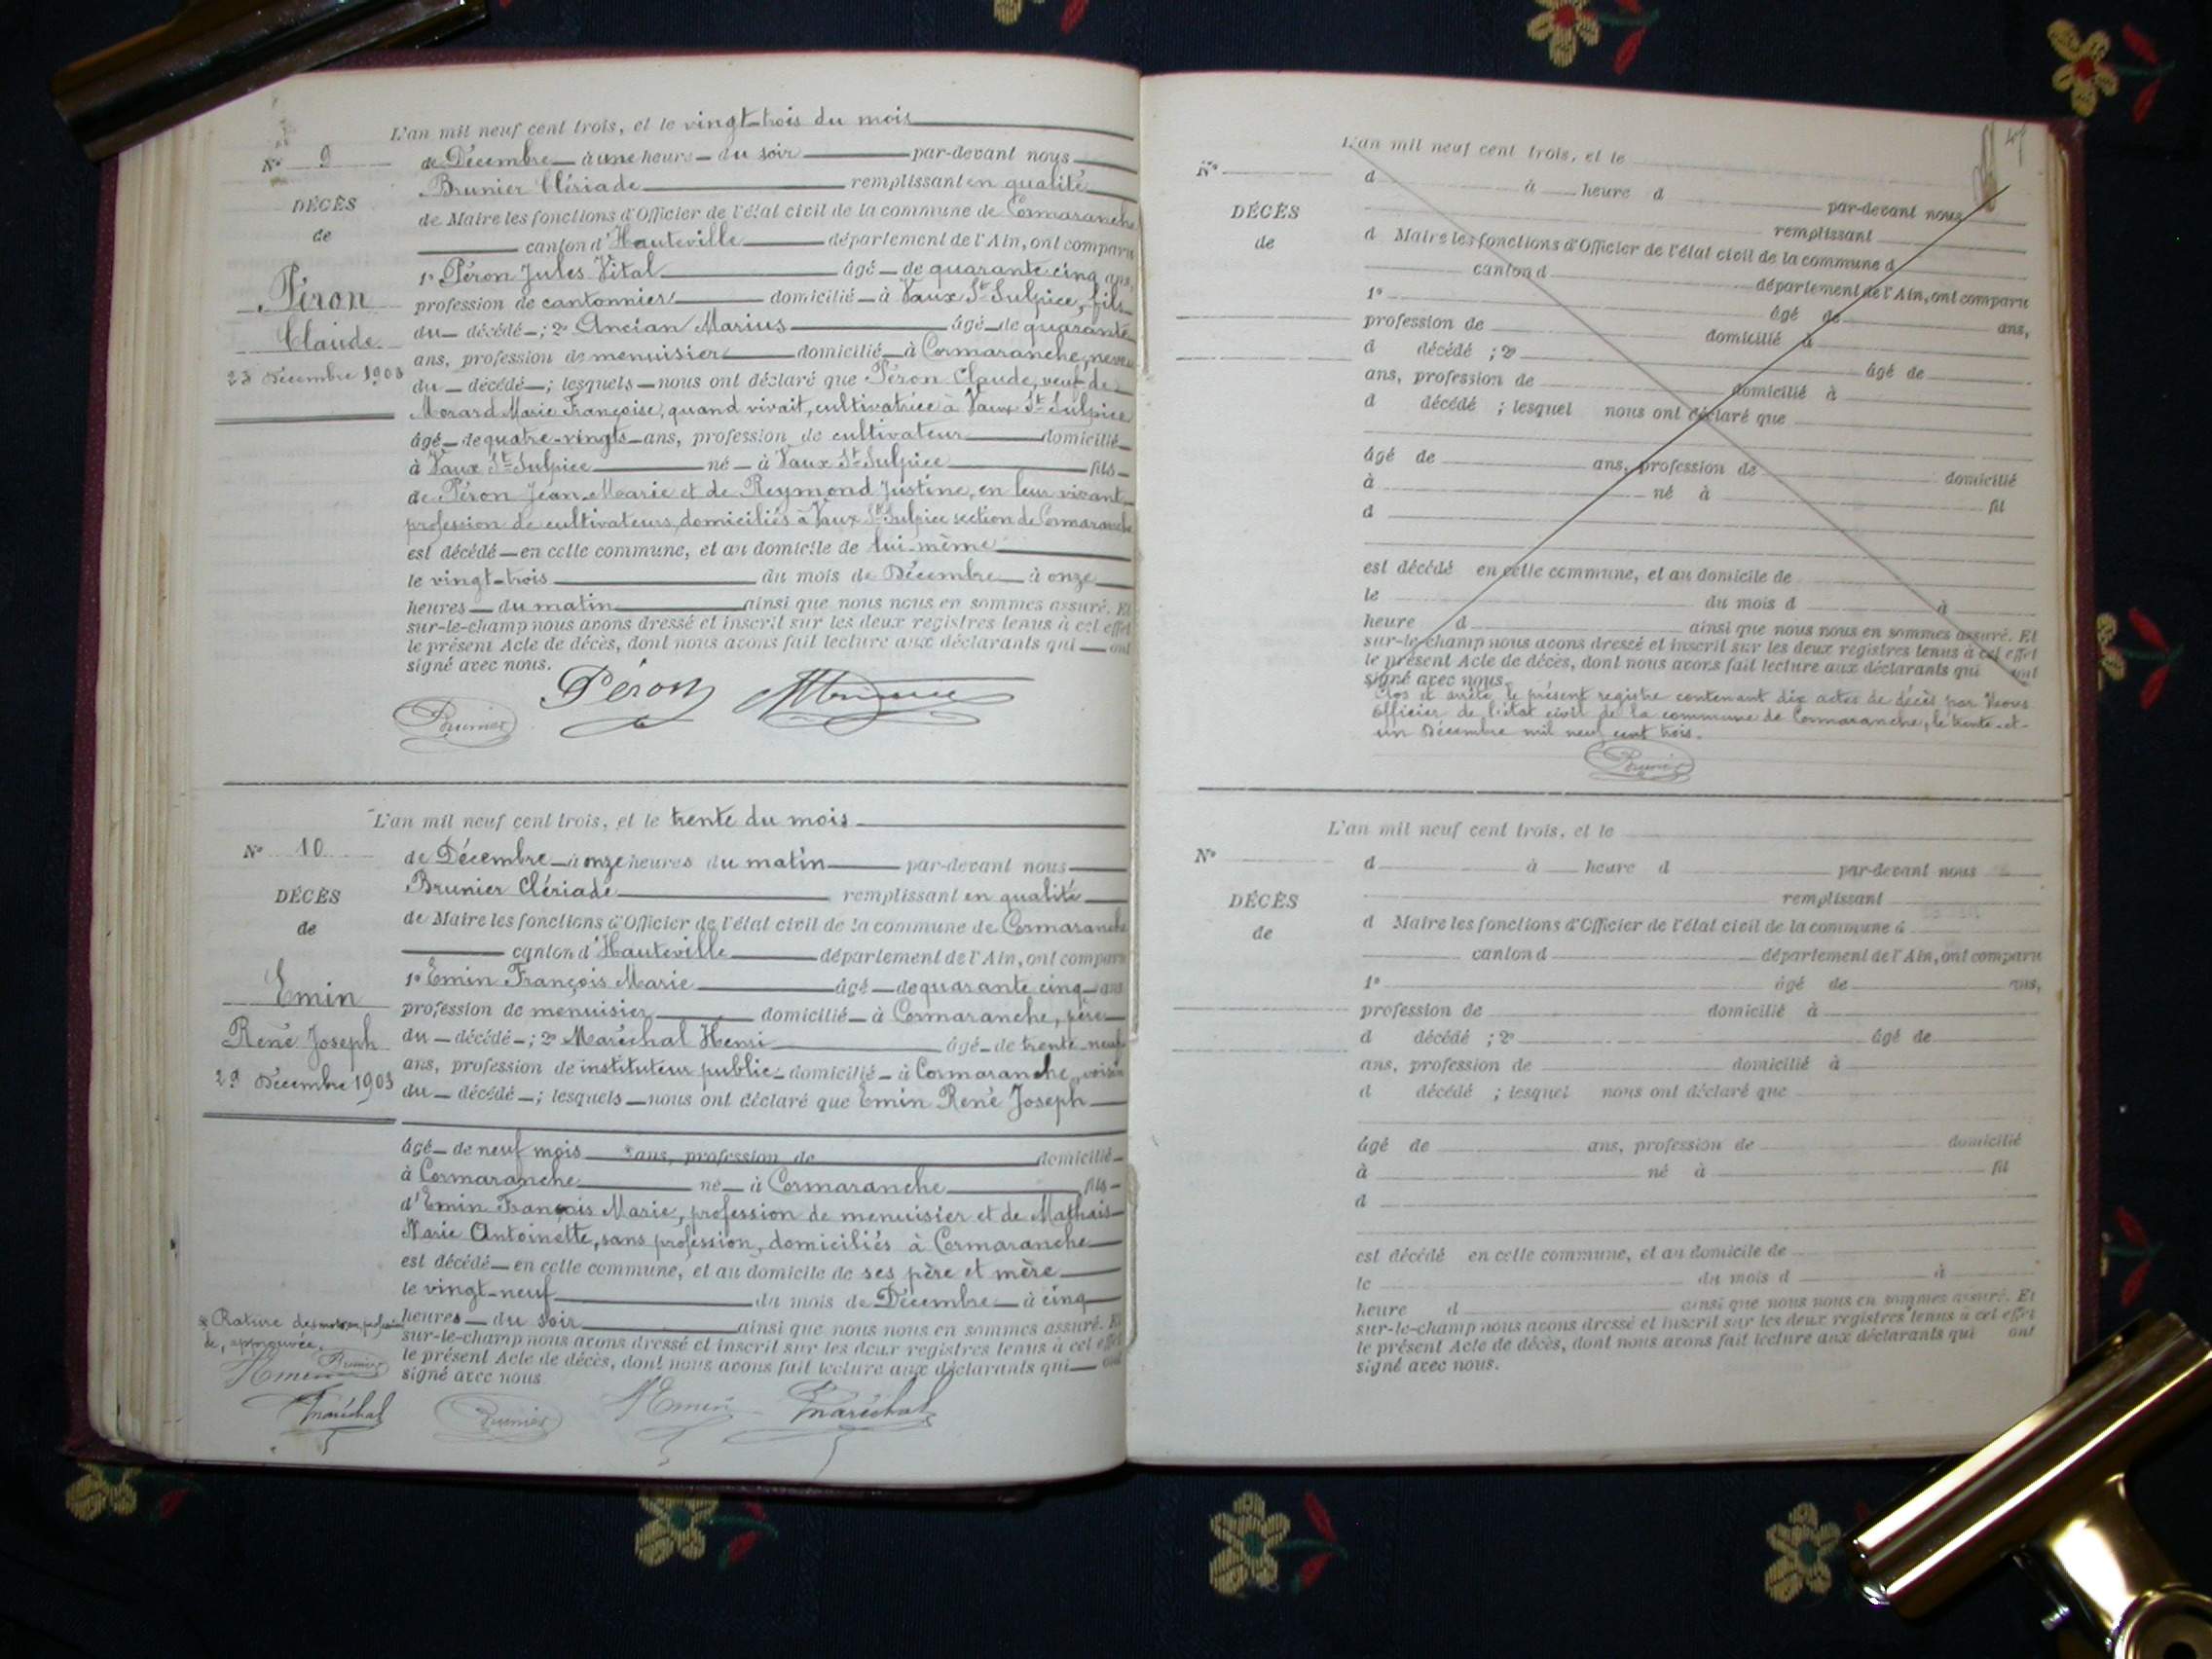 L'an mil neuf cent trois, et le vingt-trois du mois
N° 9
de Décembre à une heure du soir par-devant nous
Brunier Clériade remplissant en qualité
DÉCÈS
de Maire les fonctions d'Officier de l'état civil de la commune de Cormaranche
de
canton d'Hauteville département de l'Ain, ont comparu
1° Péron Jules Vital âgé de quarante-cinq ans,
Péron
profession de cantonnier domicilié à Vaux St-Sulpice, fils
Claude
du décédé ; 2° Ancian Marius âgé de quarante
ans, profession de menuisier domicilié à Cormaranche, neveu
23 Décembre 1903
du décédé ; lesquels nous ont déclaré que Péron Claude, veuf de
Morard Marie Françoise, quand vivait, cultivatrice à Vaux St-Sulpice
âgé de quatre-vingts ans, profession de cultivateur domicilié
à Vaux St-Sulpice né à Vaux St-Sulpice fils
de Péron Jean-Marie et de Reymond Justine, en leur vivant
profession de cultivateurs, domiciliés à Vaux St-Sulpice section de Cormaranche
est décédé en cette commune, et au domicile de lui-même
le vingt-trois du mois de Décembre à onze
heures du matin ainsi que nous nous en sommes assuré. Et
sur-le-champ nous avons dressé et inscrit sur les deux registres tenus à cet effet
le présent Acte de décès, dont nous avons fait lecture aux déclarants qui ont
signé avec nous.
Péron
Brunier
L'an mil neuf cent trois, et le trente du mois
N° 10
de Décembre à onze heures du matin par-devant nous
Brunier Clériade remplissant en qualité
DÉCÈS
de Maire les fonctions d'Officier de l'état civil de la commune de Cormaranche
de
canton d'Hauteville département de l'Ain, ont comparu
1° Emin François Marie âgé de quarante cinq ans
Emin
profession de menuisier domicilié à Cormaranche, père
René Joseph
du décédé ; 2° Maréchal Henri âgé de trente-neuf
ans, profession de instituteur public domicilié à Cormaranche, voisin
29 Décembre 1903
du décédé ; lesquels nous ont déclaré que Emin René Joseph
âgé de neuf mois ans, profession de domicilié
à Cormaranche né à Cormaranche fils
d'Emin François Marie, profession de menuisier et de Mathais
Marie Antoinette, sans profession, domiciliés à Cormaranche
est décédé en cette commune, et au domicile de ses père et mère
le vingt-neuf du mois de Décembre à cinq
heures du soir ainsi que nous nous en sommes assuré. Et
sur-le-champ nous avons dressé et inscrit sur les deux registres tenus à cet effet
le présent Acte de décès, dont nous avons fait lecture aux déclarants qui ont
signé avec nous
Rature des mots ans, profession
de, approuvée.
Emin Brunier
Maréchal
Brunier Emin Maréchal
L'an mil neuf cent trois, et le
N°
d à heure d par-devant nous
remplissant
DÉCÈS
d Maire les fonctions d'Officier de l'état civil de la commune d
de
canton d département de l'Ain, ont comparu
1° âgé de ans,
profession de domicilié à
d décédé ; 2° âgé de
ans, profession de domicilié à
d décédé ; lesquel nous ont déclaré que
âgé de ans, profession de domicilié
à né à fil
d
est décédé en cette commune, et au domicile de
le du mois d à
heure d ainsi que nous nous en sommes assuré. Et
sur-le-champ nous avons dressé et inscrit sur les deux registres tenus à cet effet
le présent Acte de décès, dont nous avons fait lecture aux déclarants qui ont
signé avec nous.
Clos et arrêté le présent registre contenant dix actes de décès par Nous
Officier de l'état civil de la commune de Cormaranche, le trente-et-
un Décembre mil neuf cent trois.
Brunier
L'an mil neuf cent trois, et le
N°
d à heure d par-devant nous
remplissant
DÉCÈS
d Maire les fonctions d'Officier de l'état civil de la commune d
de
canton d département de l'Ain, ont comparu
1° âgé de ans,
profession de domicilié à
d décédé ; 2° âgé de
ans, profession de domicilié à
d décédé ; lesquel nous ont déclaré que
âgé de ans, profession de domicilié
à né à fil
d
est décédé en cette commune, et au domicile de
le du mois d à
heure d ainsi que nous nous en sommes assuré. Et
sur-le-champ nous avons dressé et inscrit sur les deux registres tenus à cet effet
le présent Acte de décès, dont nous avons fait lecture aux déclarants qui ont
signé avec nous.